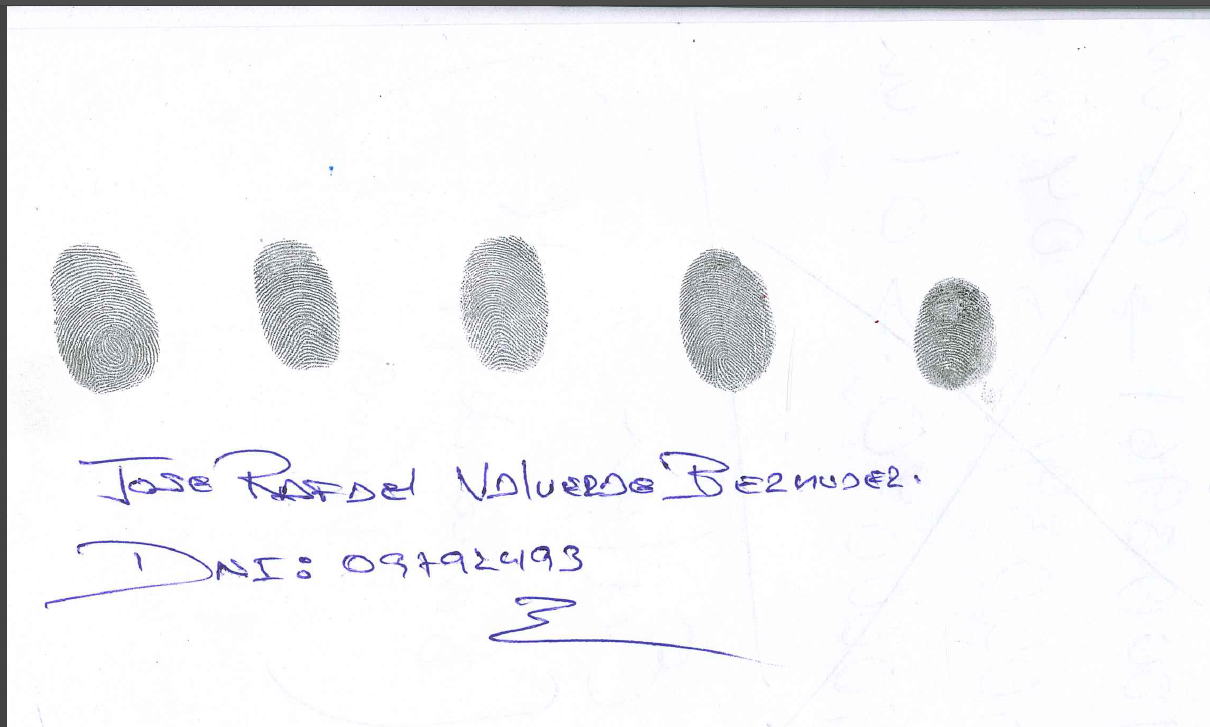 Jose Rafael Valverde Bermudez.
DNI: 09792493